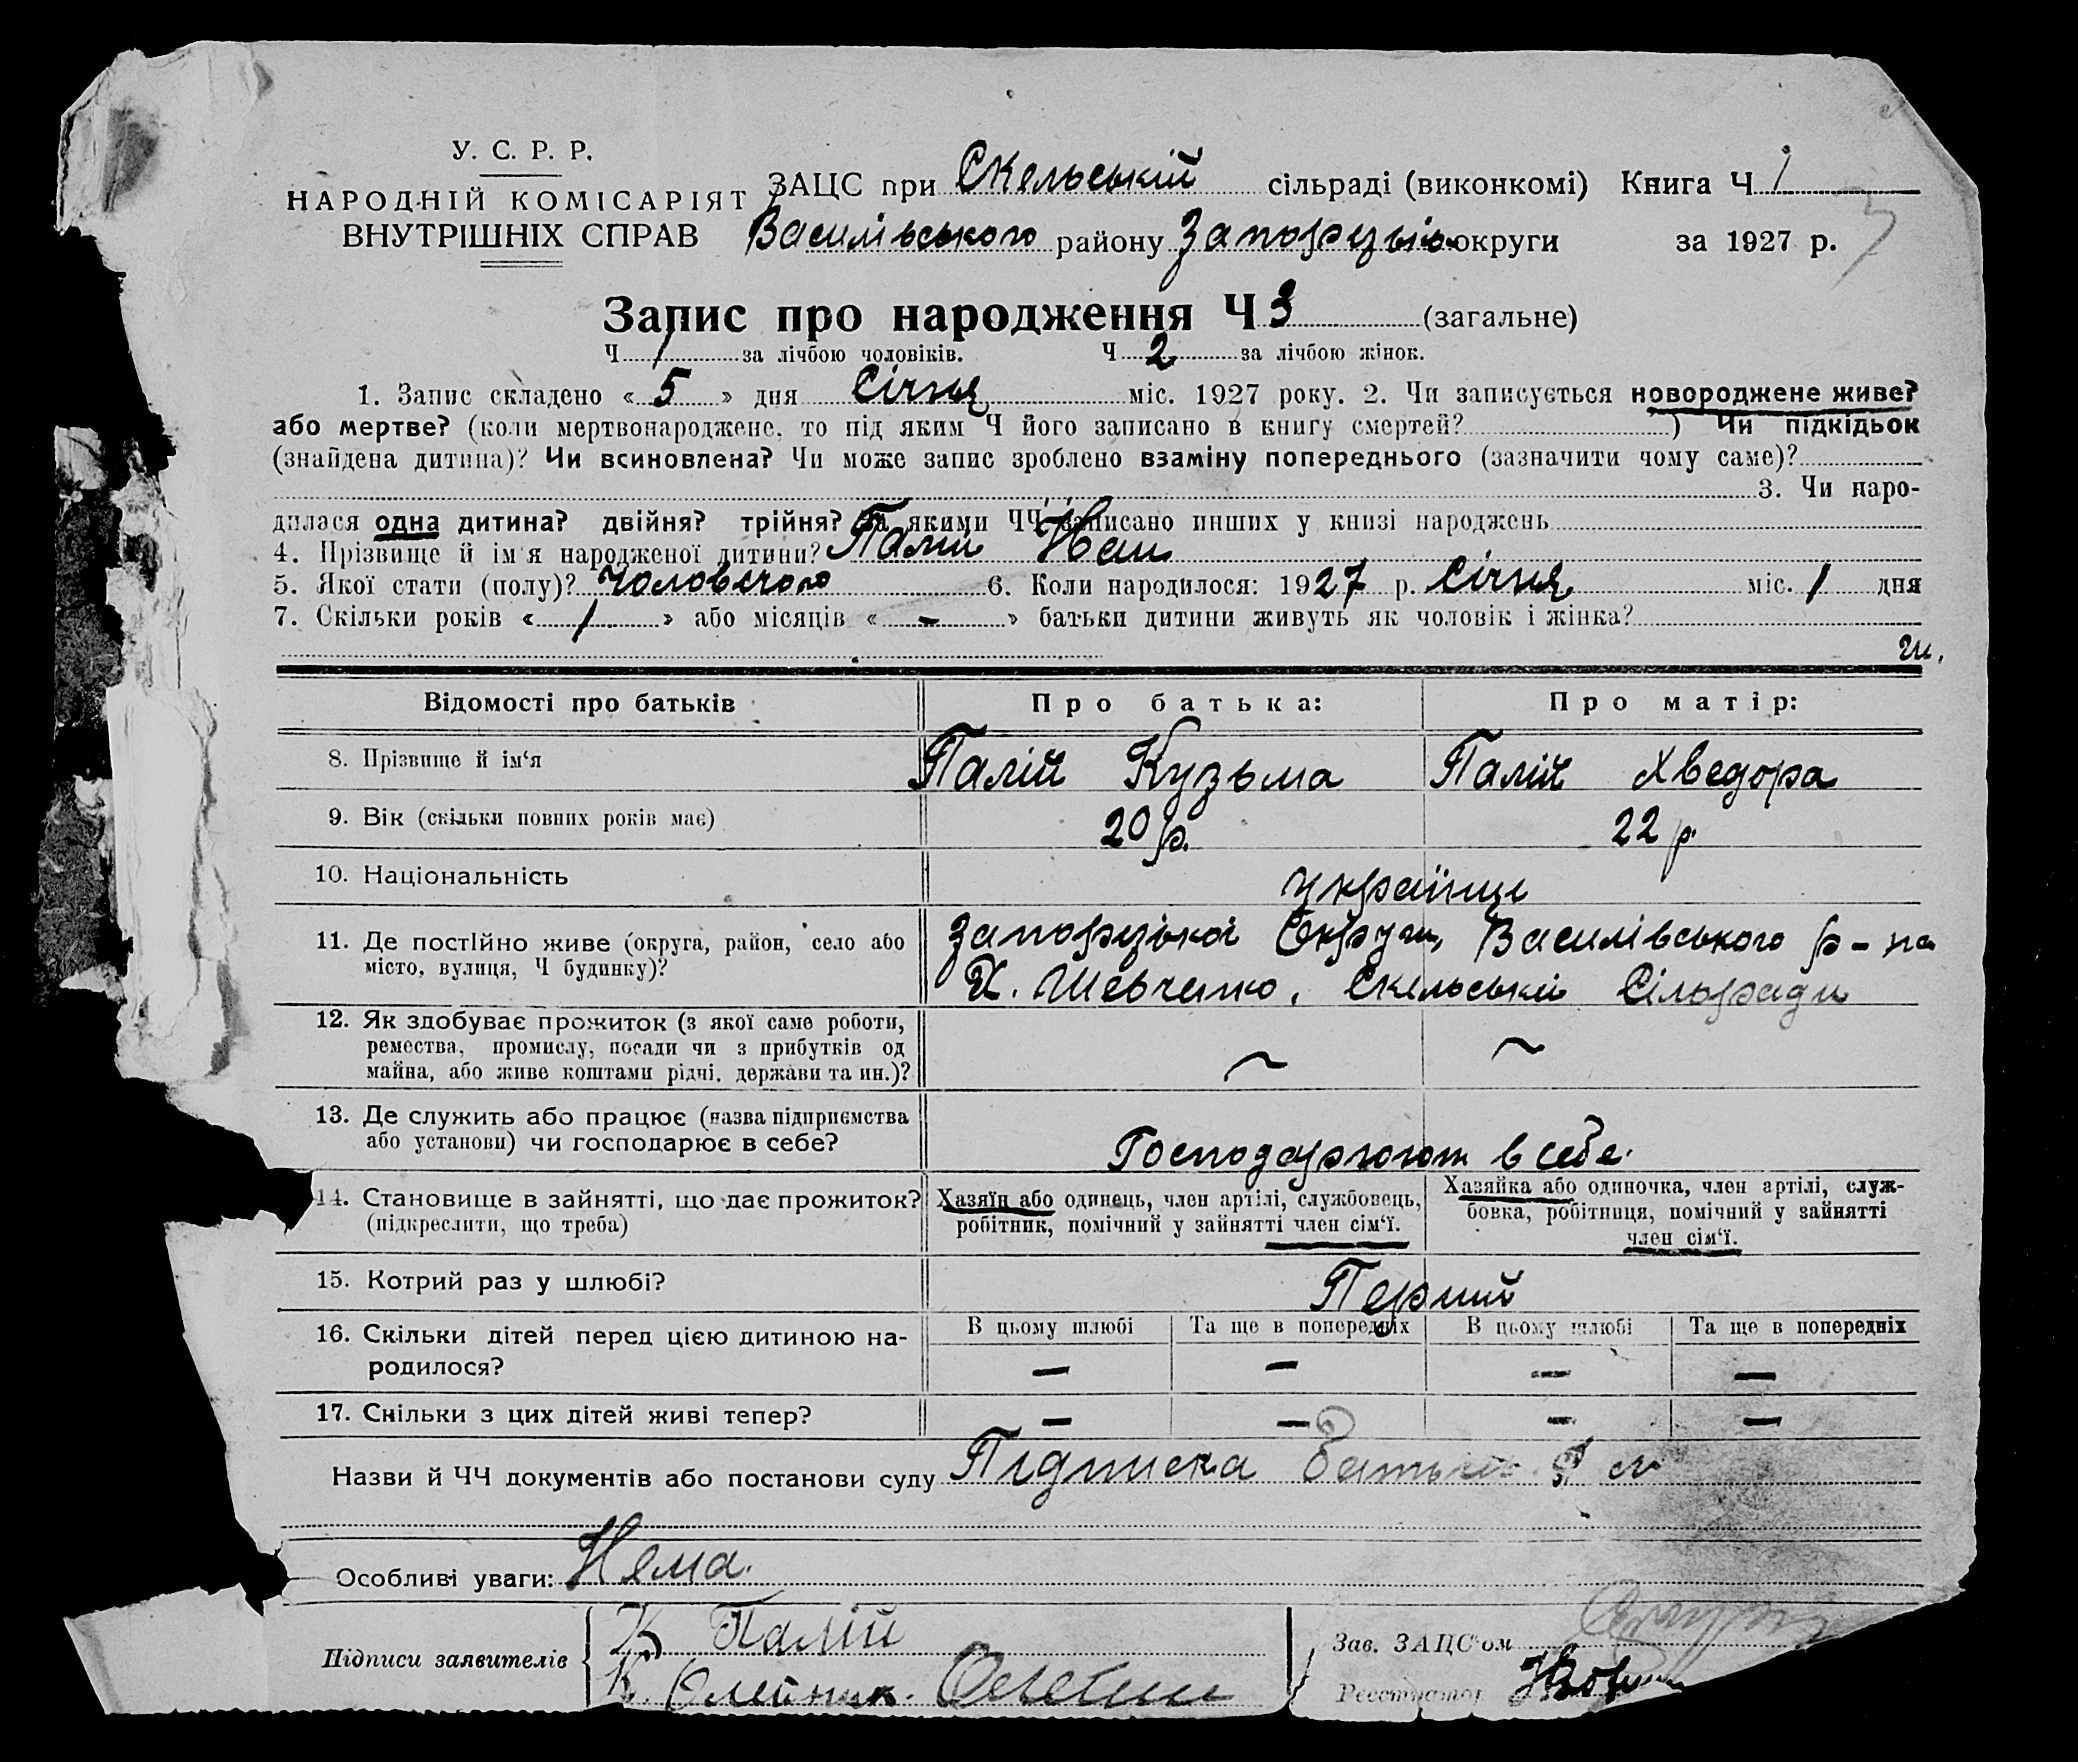 У. С. Р. Р.
НАРОДНІЙ КОМІСАРІЯТ
ВНУТРІШНІХ СПРАВ
ЗАЦС при Скельській сільраді (виконкомі) Книга Ч 1
Василівського району Запорізької округи за 1927 р.
7
Запис про народження Ч 3 (загальне)
Ч 1 за лічбою чоловіків. Ч 2 за лічбою жінок.
1. Запис складено « 5 » дня Січня міс. 1927 року. 2. Чи записується новороджене живе?
або мертве? (коли мертвонароджене, то під яким Ч його записано в книгу смертей? ) Чи підкідьок
(знайдена дитина)? Чи всиновлена? Чи може запис зроблено взаміну попереднього (зазначити чому саме)?
3. Чи наро-
дилася одна дитина? двійня? трійня? За якими ЧЧ записано инших у книзі народжень
4. Прізвище й ім'я народженої дитини? Палій Іван
5. Якої стати (полу)? Чоловічого 6. Коли народилося: 1927 р. Січня міс. 1 дня
7. Скільки років « 1 » або місяців « - » батьки дитини живуть як чоловік і жінка?
Відомості про батьків Про батька: Про матір:
8. Прізвище й ім'я Палій Кузьма Палій Хведора
9. Вік (скільки повних років має) 20 р. 22 р.
10. Національність українці
11. Де постійно живе (округа, район, село або
місто, вулиця, Ч будинку)?
Запорізької Округи, Василівського р-на
Х. Шевченко, Скельській Сільради
12. Як здобуває прожиток (з якої саме роботи,
ремества, промислу, посади чи з прибутків од
майна, або живе коштами рідні, держави та ин.)?
13. Де служить або працює (назва підприємства
або установи) чи господарює в себе?
Господарюють в себе.
14. Становище в зайнятті, що дає прожиток?
(підкреслити, що треба)
Хазяїн або одинець, член артілі, службовець,
робітник, помічний у зайнятті член сім'ї.
Хазяйка або одиночка, член артілі, служ-
бовка, робітниця, помічний у зайнятті
член сім'ї.
15. Котрий раз у шлюбі? Перший
16. Скільки дітей перед цією дитиною на-
родилося?
В цьому шлюбі Та ще в попередніх В цьому шлюбі Та ще в попередніх
— — — —
17. Скільки з цих дітей живі тепер? — — — —
Назви й ЧЧ документів або постанови суду Підписка батьків
Особливі уваги: Нема.
Підписи заявителів
К Палій
К. Олейник.
Зав. ЗАЦС'ом
Реєстратор